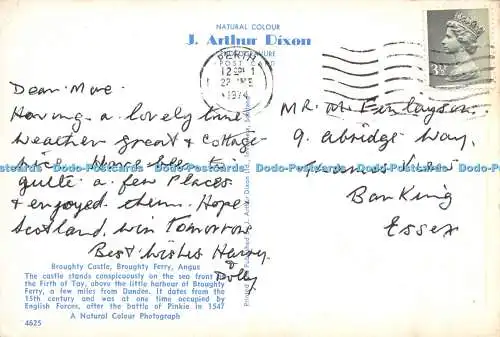 NATURAL COLOUR
J. Arthur Dixon
PHOTOGRAVURE
POST CARD
PERTH
12 PM
22 JNE
1974
3½
Dear Mae.
Having a lovely time
weather great & cottage
nice. Have been to
quite a few places
& enjoyed them. Hope
Scotland win Tomorrow
Best wishes Harry
& Dolly
MR. M. Finlayson.
9. abridge Way,
Thames View
Barking
Essex
Dodo-Postcards Dodo-Postcards Dodo-Postcards Dodo-Postcards Dodo-Postcards Dodo-Postcards
Broughty Castle, Broughty Ferry, Angus
The castle stands conspicuously on the sea front of
the Firth of Tay, above the little harbour of Broughty
Ferry, a few miles from Dundee. It dates from the
15th century and was at one time occupied by
English Forces, after the battle of Pinkie in 1547
A Natural Colour Photograph
4625